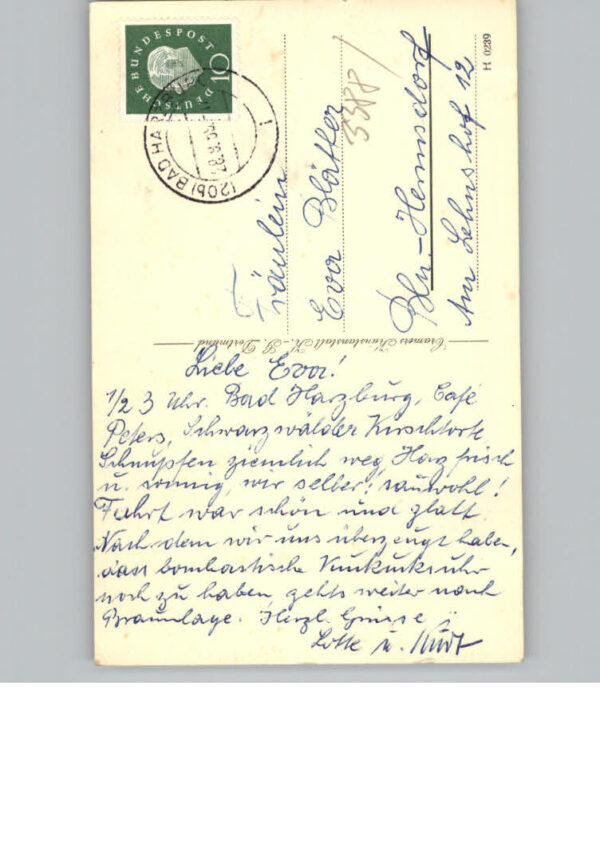 DEUTSCHE BUNDESPOST
10
(20b) BAD HARZ
Fräulein
Eva Blätter
3388
Bln.-Hermsdorf
Am Lehnshof 12
H 0239
Cramers Kunstanstalt K.-G. Dortmund
Liebe Eva!
1/2 3 Uhr. Bad Harzburg, Café
Peters, Schwarzwälder Kirschtorte
Schnupfen ziemlich weg, Harz frisch
u. sonnig, wir selber: sauwohl!
Fahrt war schön und glatt.
Nach dem wir uns überzeugt haben,
dass bombastische Kuckucksuhr
noch zu haben, gehts weiter nach
Braunlage. Herzl. Grüsse
Lotte u. Kurt